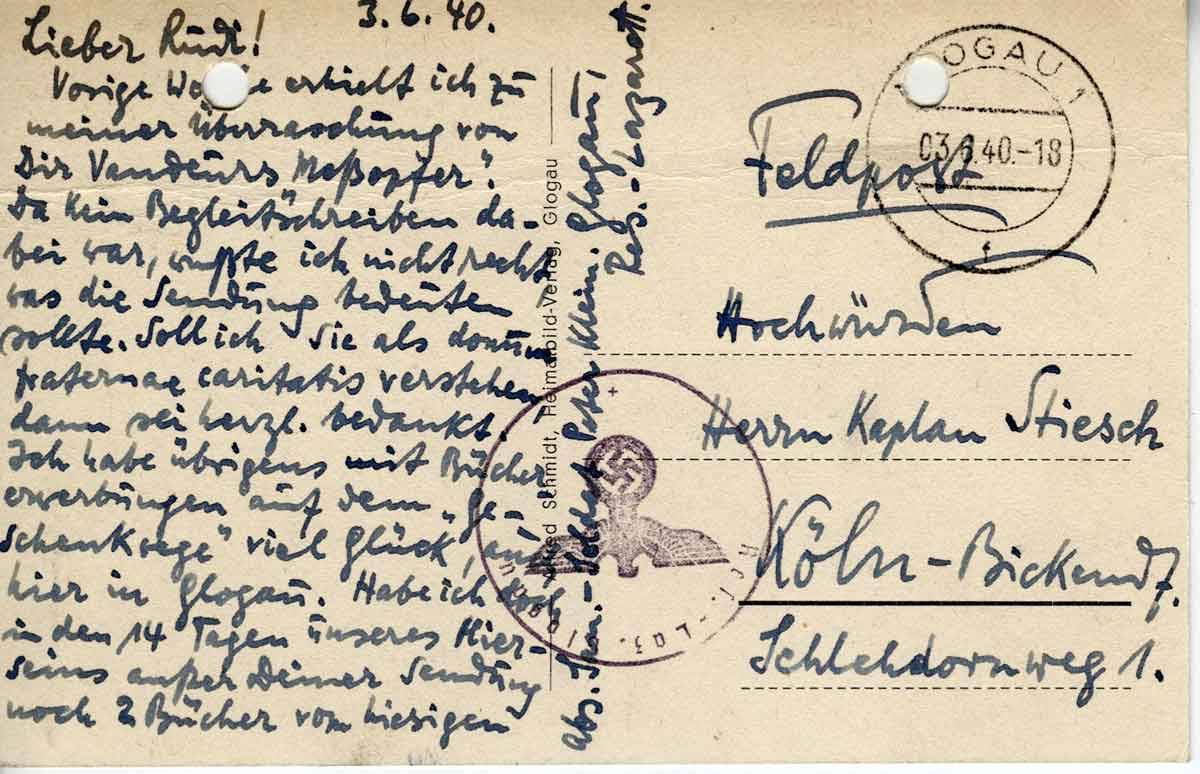 3.6.40.
Lieber Rudi!
Vorige Wo e erhielt ich zu
meiner Überraschung von
Dir Vandeurs „Meßopfer".
Da kein Begleitschreiben da-
bei war, wußte ich nicht recht
was die Sendung bedeuten
sollte. Soll ich Sie als donum
fraternae caritatis verstehen
dann sei herzl. bedankt!
Ich habe übrigens mit Bücher
erwerbungen auf dem „Ge-
schenkwege" viel Glück, auch
hier in Glogau. Habe ich doch
in den 14 Tagen unseres Hier-
seins außer Deiner Sendung
noch 2 Bücher vom hiesigen
Abs. San.-Soldat Peter Klein, Glogau 1
Res.-Lazarett.
Schmidt, Heimatbild-Verlag, Glogau
OGAU 1
03.6.40.-18
f
Feldpost
Hochwürden
Herrn Kaplan Stiesch
Köln-Bickendf.
Schlehdornweg 1.